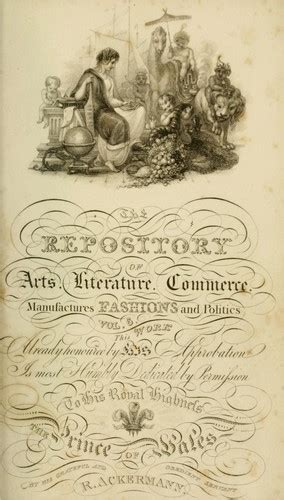 The
REPOSITORY
OF
Arts, Literature, Commerce,
Manufactures FASHIONS and Politics
VOL.
This WORK
Already honoured by HIS Approbation
Is most Humbly Dedicated by Permission
To His Royal Highness
THE Prince OF Wales
BY HIS GRATEFUL AND OBEDIENT SERVANT
R. ACKERMANN.